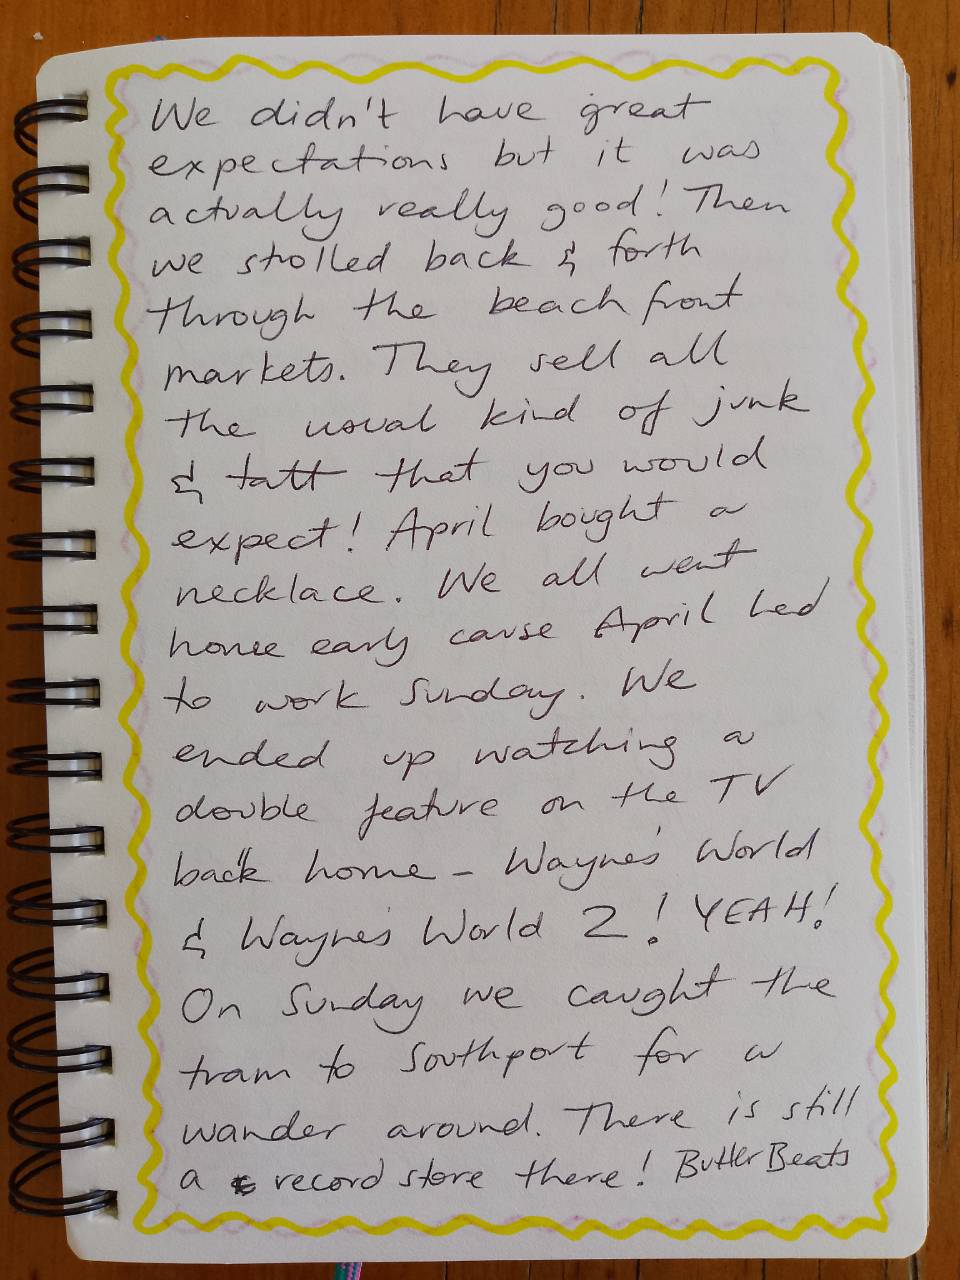 We didn't have great
expectations but it was
actually really good! Then
we strolled back & forth
through the beach front
markets. They sell all
the usual kind of junk
& tatt that you would
expect! April bought a
necklace. We all went
home early cause April had
to work Sunday. We
ended up watching a
double feature on the TV
back home - Wayne's World
& Wayne's World 2! YEAH!
On Sunday we caught the
tram to Southport for a
wander around. There is still
a record store there! Butter Beats